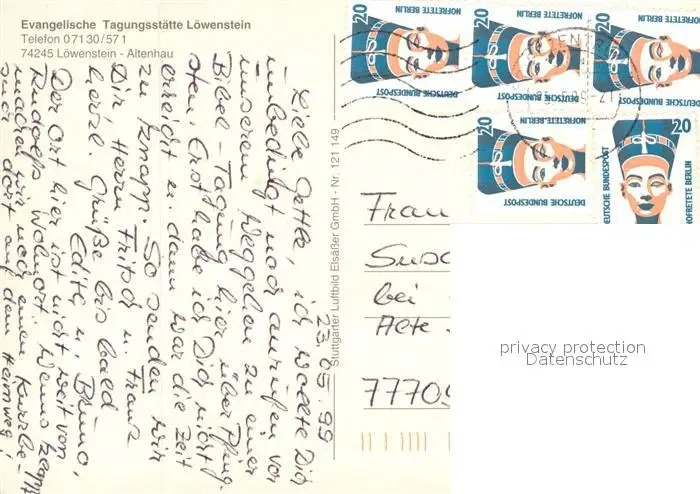 Evangelische Tagungsstätte Löwenstein
Telefon 0 71 30 / 5 71
74245 Löwenstein - Altenhau
23.05.99
Liebe Oettle, ich wollte Dich
unbedingt noch anrufen vor
unserem Weggehen zu einer
Bibel-Tagung hier über Pfing-
sten. Erst habe ich Dich nicht
erreicht u. dann war die Zeit
zu knapp. So senden wir
Dir, Herrn Fritsch u. Franz
herzl. Grüße bis bald
Edith u. Bruno,
Der Ort hier ist nicht weit von
Rudolfs Wohnort. Wenns
machen wir noch einen Kurzbe-
such dort auf dem Heimweg!
Stuttgarter Luftbild Elsäßer GmbH - Nr. 121 149
20
DEUTSCHE BUNDESPOST
NOFRETETE BERLIN
20
DEUTSCHE BUNDESPOST
NOFRETETE BERLIN
20
DEUTSCHE BUNDESPOST
NOFRETETE BERLIN
20
DEUTSCHE BUNDESPOST
NOFRETETE BERLIN
20
DEUTSCHE BUNDESPOST
NOFRETETE BERLIN
Frau
bei
Alte
77709
privacy protection
Datenschutz